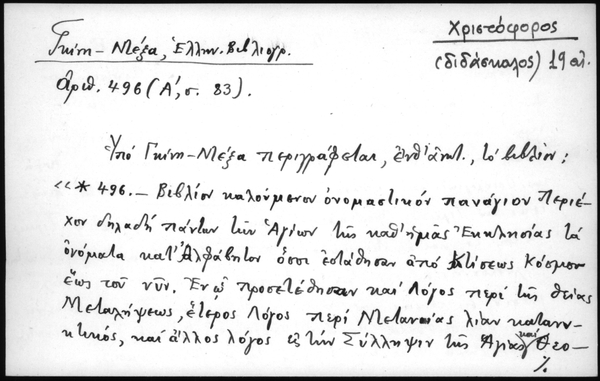 Χριστόφορος
(διδάσκαλος) 19 αἰ.
Γκίνη – Μέξα, Ἑλλην. Βιβλιογρ.
ἀριθ. 496 (Α΄, σ. 83).
Ὑπό Γκίνη – Μέξα περιγράφεται, ἐνθ' ἀνωτ., τό βιβλίον:
«* 496. – Βιβλίον καλούμενον ὀνομαστικόν πανάγιον περιέ-
χον δηλαδή πάντων τῶν Ἁγίων τῆς καθ' ἡμᾶς Ἐκκλησίας τά
ὀνόματα κατ' Ἀλφάβητον ὅσοι ἐστάθησαν ἀπό Κτίσεως Κόσμου
ἕως τοῦ νῦν. Ἐν ᾧ προσετέθησαν καί Λόγος περί τῆς θείας
Μεταλήψεως, ἕτερος Λόγος περί Μετανοίας λίαν κατανυ-
κτικός, καί ἄλλος λόγος εἰς τήν Σύλληψιν τῆς Ἁγίας καί Θεο-
./.